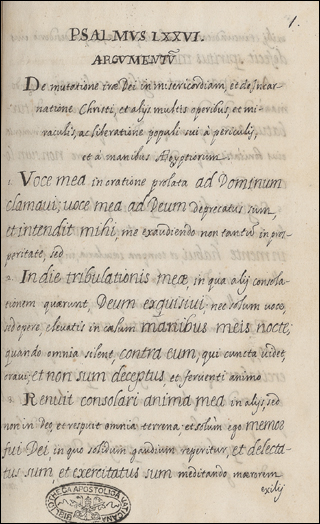 1.
PSALMVS LXXVI.
ARGVMENTŨ
De mutatione irae Dei in misericordiam, et de Incar-
natione Christi, et alijs multis operibus et mi-
raculis, ac liberatione populi sui à periculis,
et à manibus Aegyptiorum.
1. Voce mea in oratione prolata ad Dominum
clamaui; uoce mea ad Deum deprecatus sum,
et intendit mihi me exaudiendo non tantũ in pros-
peritate, sed
2. In die tribulationis meæ, in qua alij consola-
tionem quærunt, Deum exquisiui; nec solum uoce,
sed opere, eleuatis in cœlum manibus meis nocte,
quando omnia silent, contra eum, qui cuncta uidet,
oraui; et non sum deceptus, et feruenti animo
3. Renuit consolari anima mea in alijs, sed
non in deo, et respuit omnia terrena: et solum ego memor
fui Dei, in quo solidum gaudium reperitur, et delecta-
tus sum, et exercitatus sum meditando mærorem
exilij
BIBLIOTHECA APOSTOLICA VATICANA